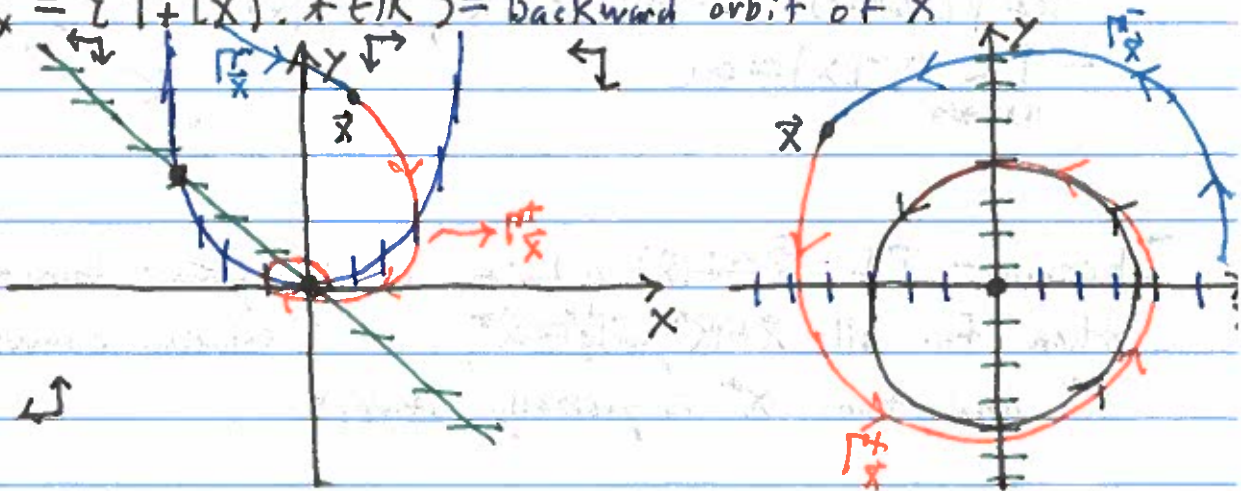 x = { f_t(x), t ∈ ℝ⁻ } = backward orbit of x
Γ⁻_x⃗ y Γ⁻_x⃗ y
x⃗ x⃗
→ Γ⁺_x⃗
x
Γ⁺_x⃗